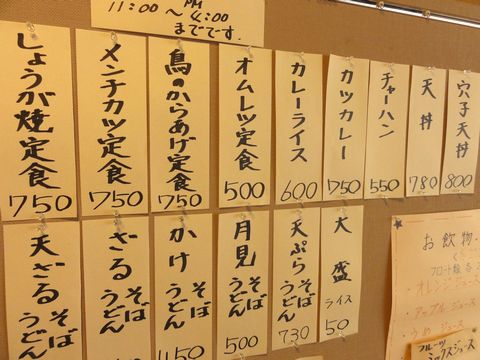 11:00 ～ PM 4:00
までです。
しょうが焼定食
750
メンチカツ定食
750
鳥のからあげ定食
750
オムレツ定食
500
カレーライス
600
カツカレー
750
チャーハン
550
天丼
780
穴子天丼
800
天ざる そば うどん
ざる そば うどん
かけ そば うどん
450
月見 そば うどん
500
天ぷら そば うどん
730
大盛
ライス
50
お飲物
フロート類
・オレンジジュース
・アップルジュース
・うめジュース
フルーツ
ミックスジュース